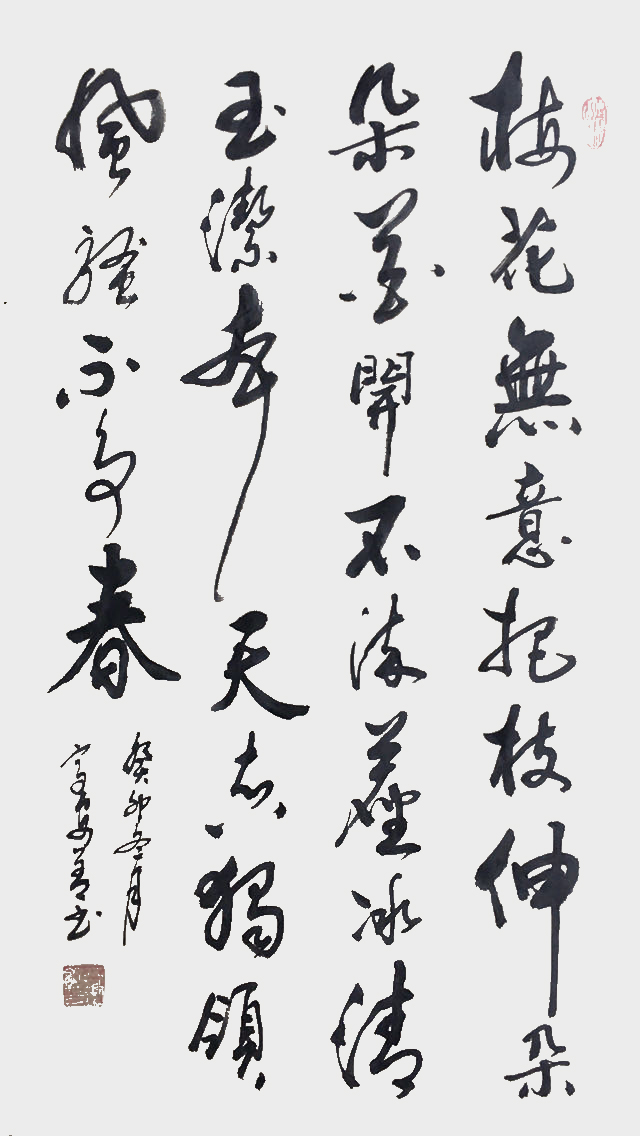 梅花無意抱枝伸朵
朵開不染塵冰清
玉潔本天志獨領
風騷不爭春
癸卯冬月
书